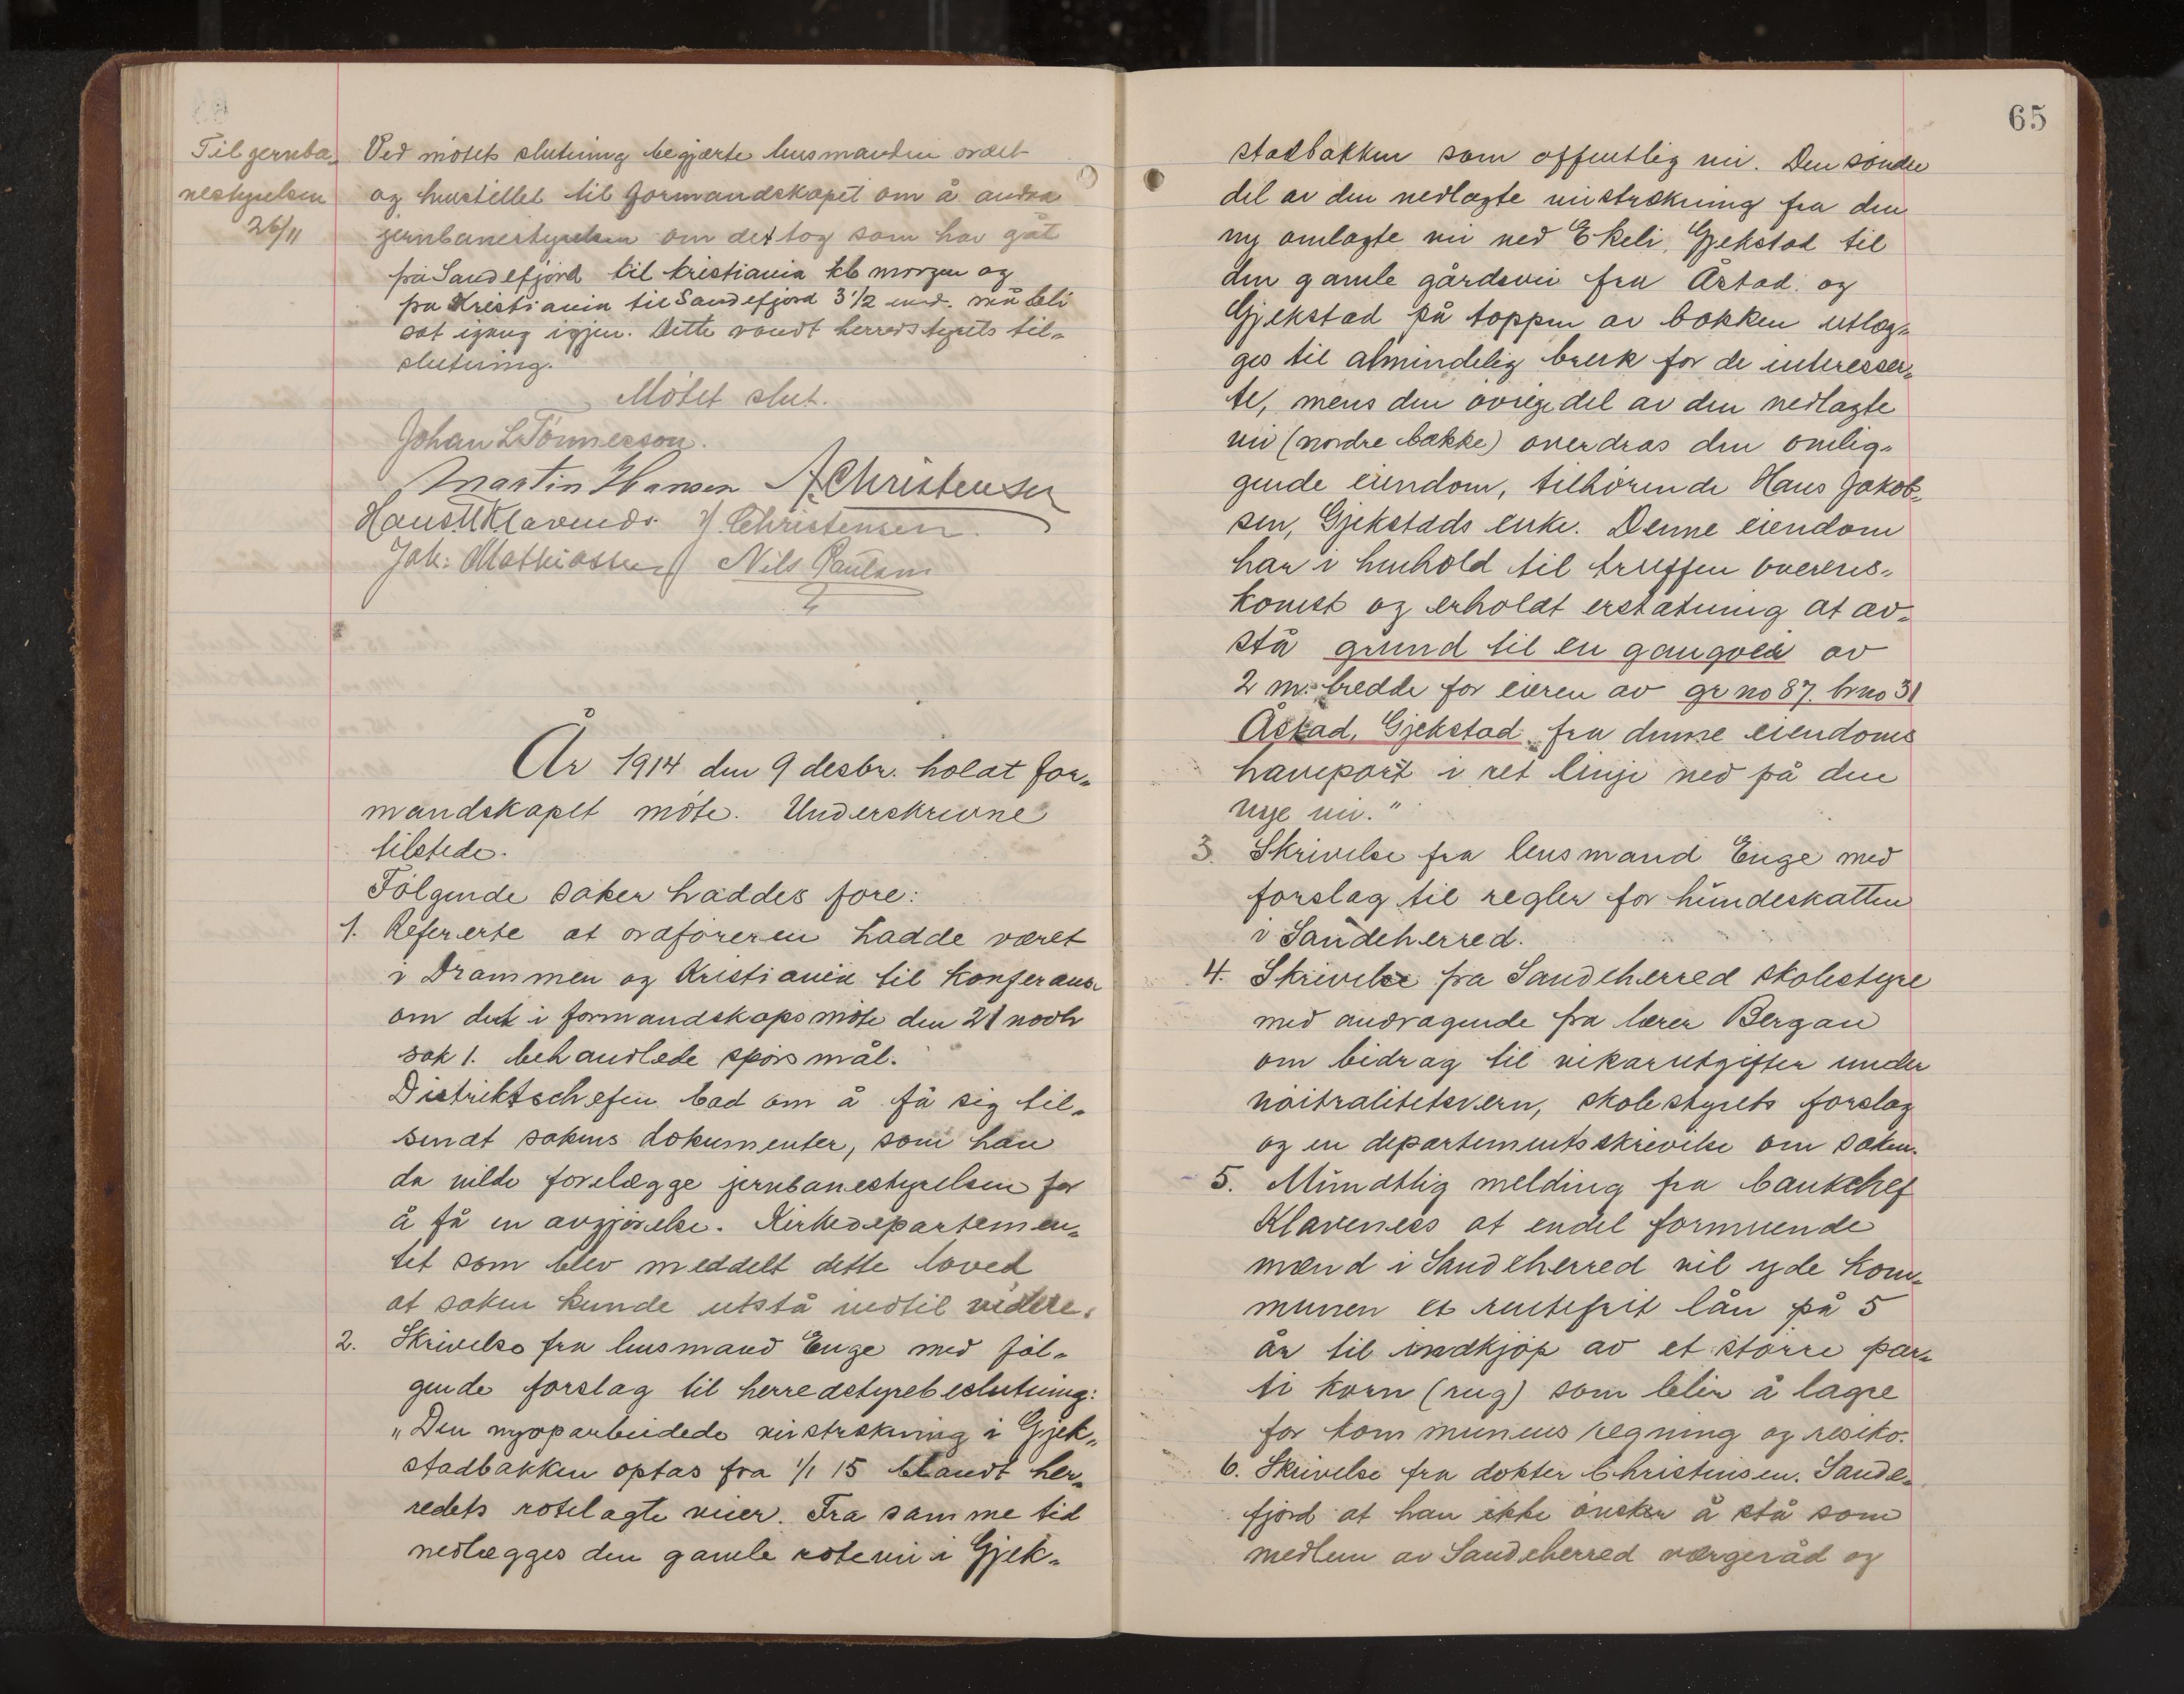 Til gernba-
nestyrelsen
26/11
Ved mötets slutning begjærte lensmanden ordet
og henstillet til formandskapet om å andra
jernbanestyrelsen om det tog som har gåt
fra Sandefjord til Kristiania kl. morgen og
fra Kristiania til Sandefjord 3 1/2 emd. må bli
sat igang igjen. Dette vandt herredstyrets til-
slutning.
Mötet slut.
Johan L Tönnesson.
Martin Hansen A. Christensen
Hans Klaveness. J. Christensen.
Joh: Mathiassen Nils Paulsen
År 1914 den 9 desbr. holdt for-
mandskapet möte. Underskrevne
tilstede.
Fölgende saker haddes fore:
1. Refererte at ordföreren hadde været
i Drammen og Kristiania til konferanse
om det i formandskapsmöte den 21 novbr
sak 1. behandlede spörsmål.
Distriktschefen bad om å få sig til-
sendt sakens dokumenter, som han
da vilde forelægge jernbanestyrelsen for
å få en avgjörelse. Kirkedepartemen-
tet som blev meddelt dette loved
at saken kunde utstå indtil videre.
2. Skrivelse fra lensmand Enge med föl-
gende forslag til herredstyrebeslutning:
"Den nyoparbeidede veistrekning i Gjek-
stadbakken optas fra 1/1 15 blandt her-
redets rotelagte veier. Fra samme tid
nedlægges den gamle rotevei i Gjek-
65
stadbakken som offentlig vei. Den söndre
del av den nedlagte veistrekning fra den
ny omlagte vei ved Ekeli, Gjekstad til
den gamle gårdsvei fra Åstad og
Gjekstad på toppen av bakken utlæg-
ges til almindelig bruk for de interesser-
te, mens den övrige del av den nedlagte
vei (nordre bakke) overdras den omlig-
gende eiendom, tilhörende Hans Jakob-
sen, Gjekstads enke. Denne eiendom
har i henhold til truffen overens-
komst og erholdt erstatning at av-
stå grund til en gangvei av
2 m. bredde for eieren av gr no 87. br no 31
Åstad, Gjekstad fra denne eiendoms
haveport i ret linje ned på den
nye vei."
3. Skrivelse fra lensmand Enge med
forslag til regler for hundeskatten
i Sandeherred.
4. Skrivelse fra Sandeherred skolestyre
med andragende fra lærer Bergan
om bidrag til vikarutgifter under
nöitralitetsvern, skolestyrets forslag
og en departementsskrivelse om saken.
5. Mundtlig melding fra bankchef
Klaveness at endel formuende
mænd i Sandeherred vil yde kom-
munen et rentefrit lån på 5
år til indkjöp av et större par-
ti korn (rug) som blir å lagre
for kommunens regning og resiko.
6. Skrivelse fra dokter Christensen. Sande-
fjord at han ikke önsker å stå som
medlem av Sandeherred vergeråd og